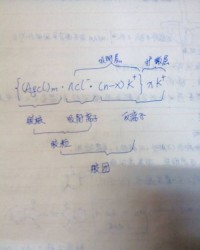 吸附层 扩散层
{(AgCl)m · nCl⁻ · (n-x)K⁺} xK⁺
胶核 吸附离子 反离子
胶粒
胶团